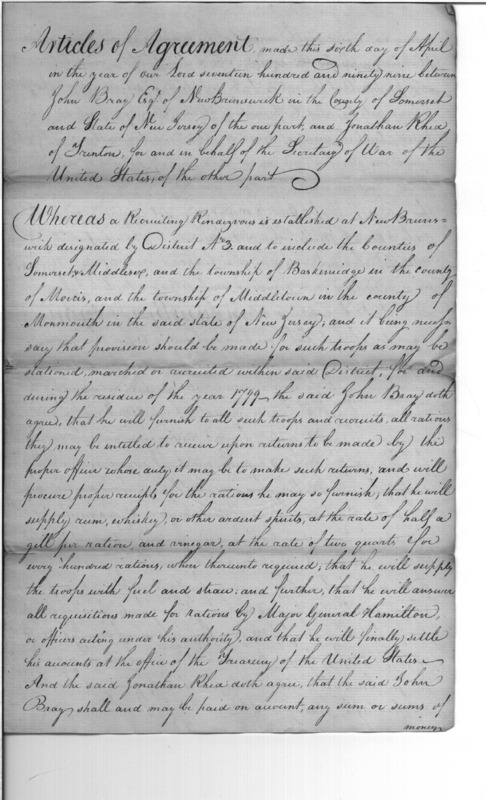 Articles of Agreement, made this sixth day of April
in the year of our Lord seventeen hundred and ninety nine between
John Bray Esqr. of New Brunswick in the County of Somerset
and State of New Jersey of the one part, and Jonathan Rhea
of Trenton, for and in behalf of the Secretary of War of the
United States, of the other part
Whereas a Recruiting Rendezvous is established at New Bruns=
wick designated by District No. 3. and to include the Counties of
Somerset & Middlesex, and the township of Baskenridge in the county
of Morris, and the township of Middletown in the county of
Monmouth in the said state of New Jersey; and it being neces=
sary that provision should be made for such troops as may be
stationed, marched or recruited within said District, for and
during the residue of the year 1799 the said John Bray doth
agree, that he will furnish to all such troops and recruits, all rations
they may be intitled to receive upon returns to be made by the
proper officer whose duty it may be to make such returns, and will
procure proper receipts for the rations he may so furnish; that he will
supply rum, whiskey, or other ardent spirits, at the rate of half a
gill per ration, and vinegar, at the rate of two quarts for
every hundred rations, when thereunto required; that he will supply
the troops with fuel and straw; and further, that he will answer
all requisitions made for rations by Major General Hamilton,
or officers acting under his authority, and that he will finally settle
his accounts at the office of the Treasury of the United States.
And the said Jonathan Rhea doth agree, that the said John
Bray shall and may be paid on account, any sum or sums of
money